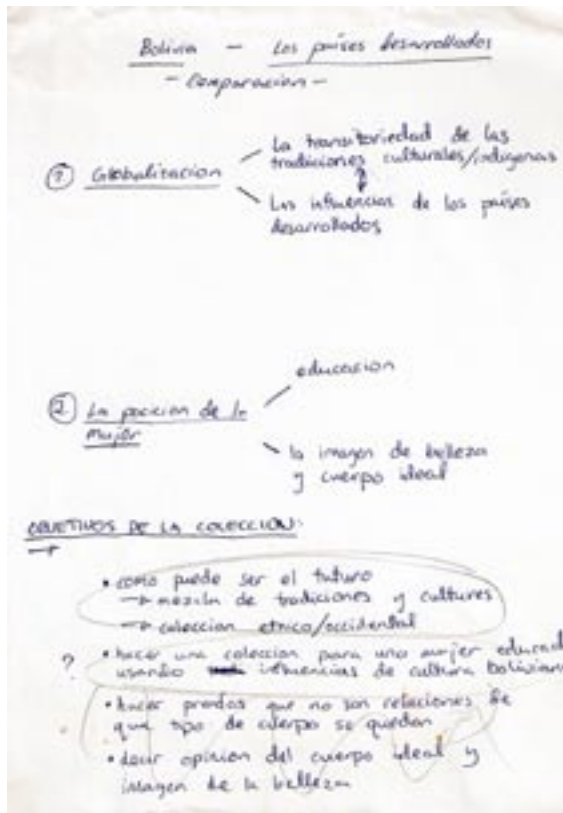 Bolivia — Los países desarrollados
- Comparacion -
① Globalizacion
La transitoriedad de las
tradiciones culturales/indigenas
Las influencias de los países
desarrollados
② La posicion de la
mujer
educacion
la imagen de belleza
y cuerpo ideal
OBJETIVOS DE LA COLECCION:
• como puede ser el futuro
→ mezcla de tradiciones y cultures
→ coleccion etnico/occidental
? • hacer una coleccion para una mujer educad
usando influencias de cultura boliviana
• hacer prendas que no son relaciones de
que tipo de cuerpo se quedan
• decir opinion del cuerpo ideal y
imagen de la belleza